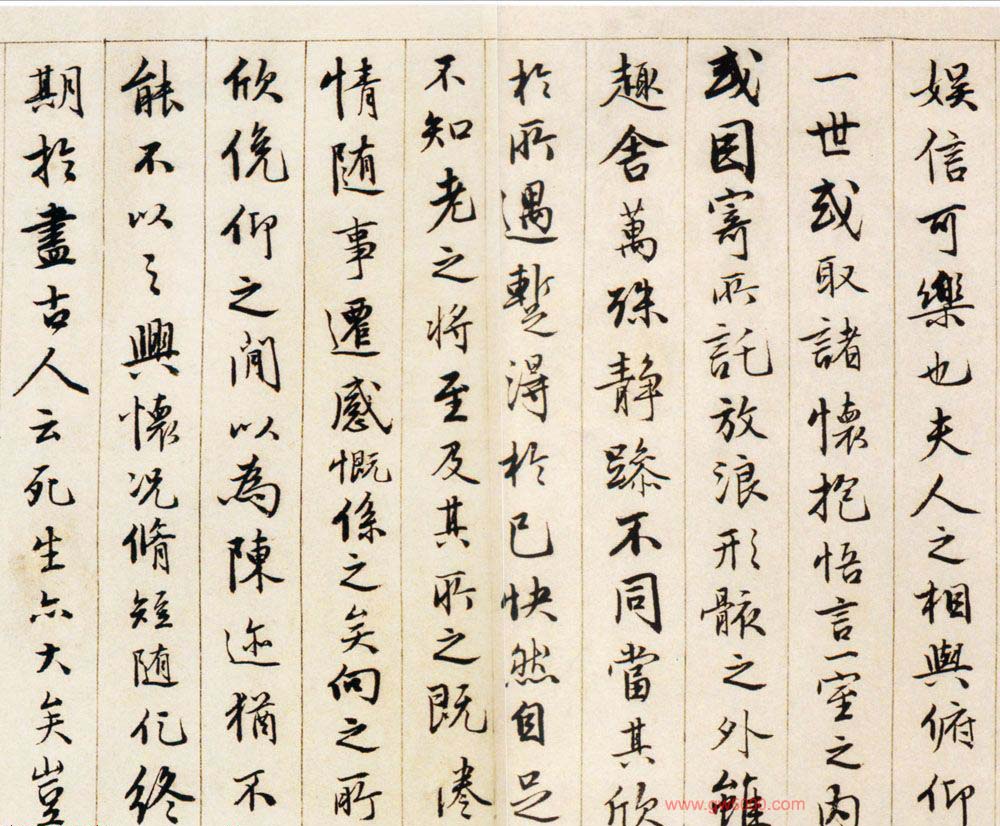 娱信可樂也夫人之相與俯仰
一世或取諸懷抱悟言一室之内
或因寄所託放浪形骸之外雖
趣舍萬殊静躁不同當其欣
於所遇暫得於己快然自足
不知老之将至及其所之既惓
情随事遷感慨係之矣向之所
欣俛仰之間以為陳迹猶不
能不以之興懷况脩短随化終
期於盡古人云死生亦大矣豈
www.gw5000.com